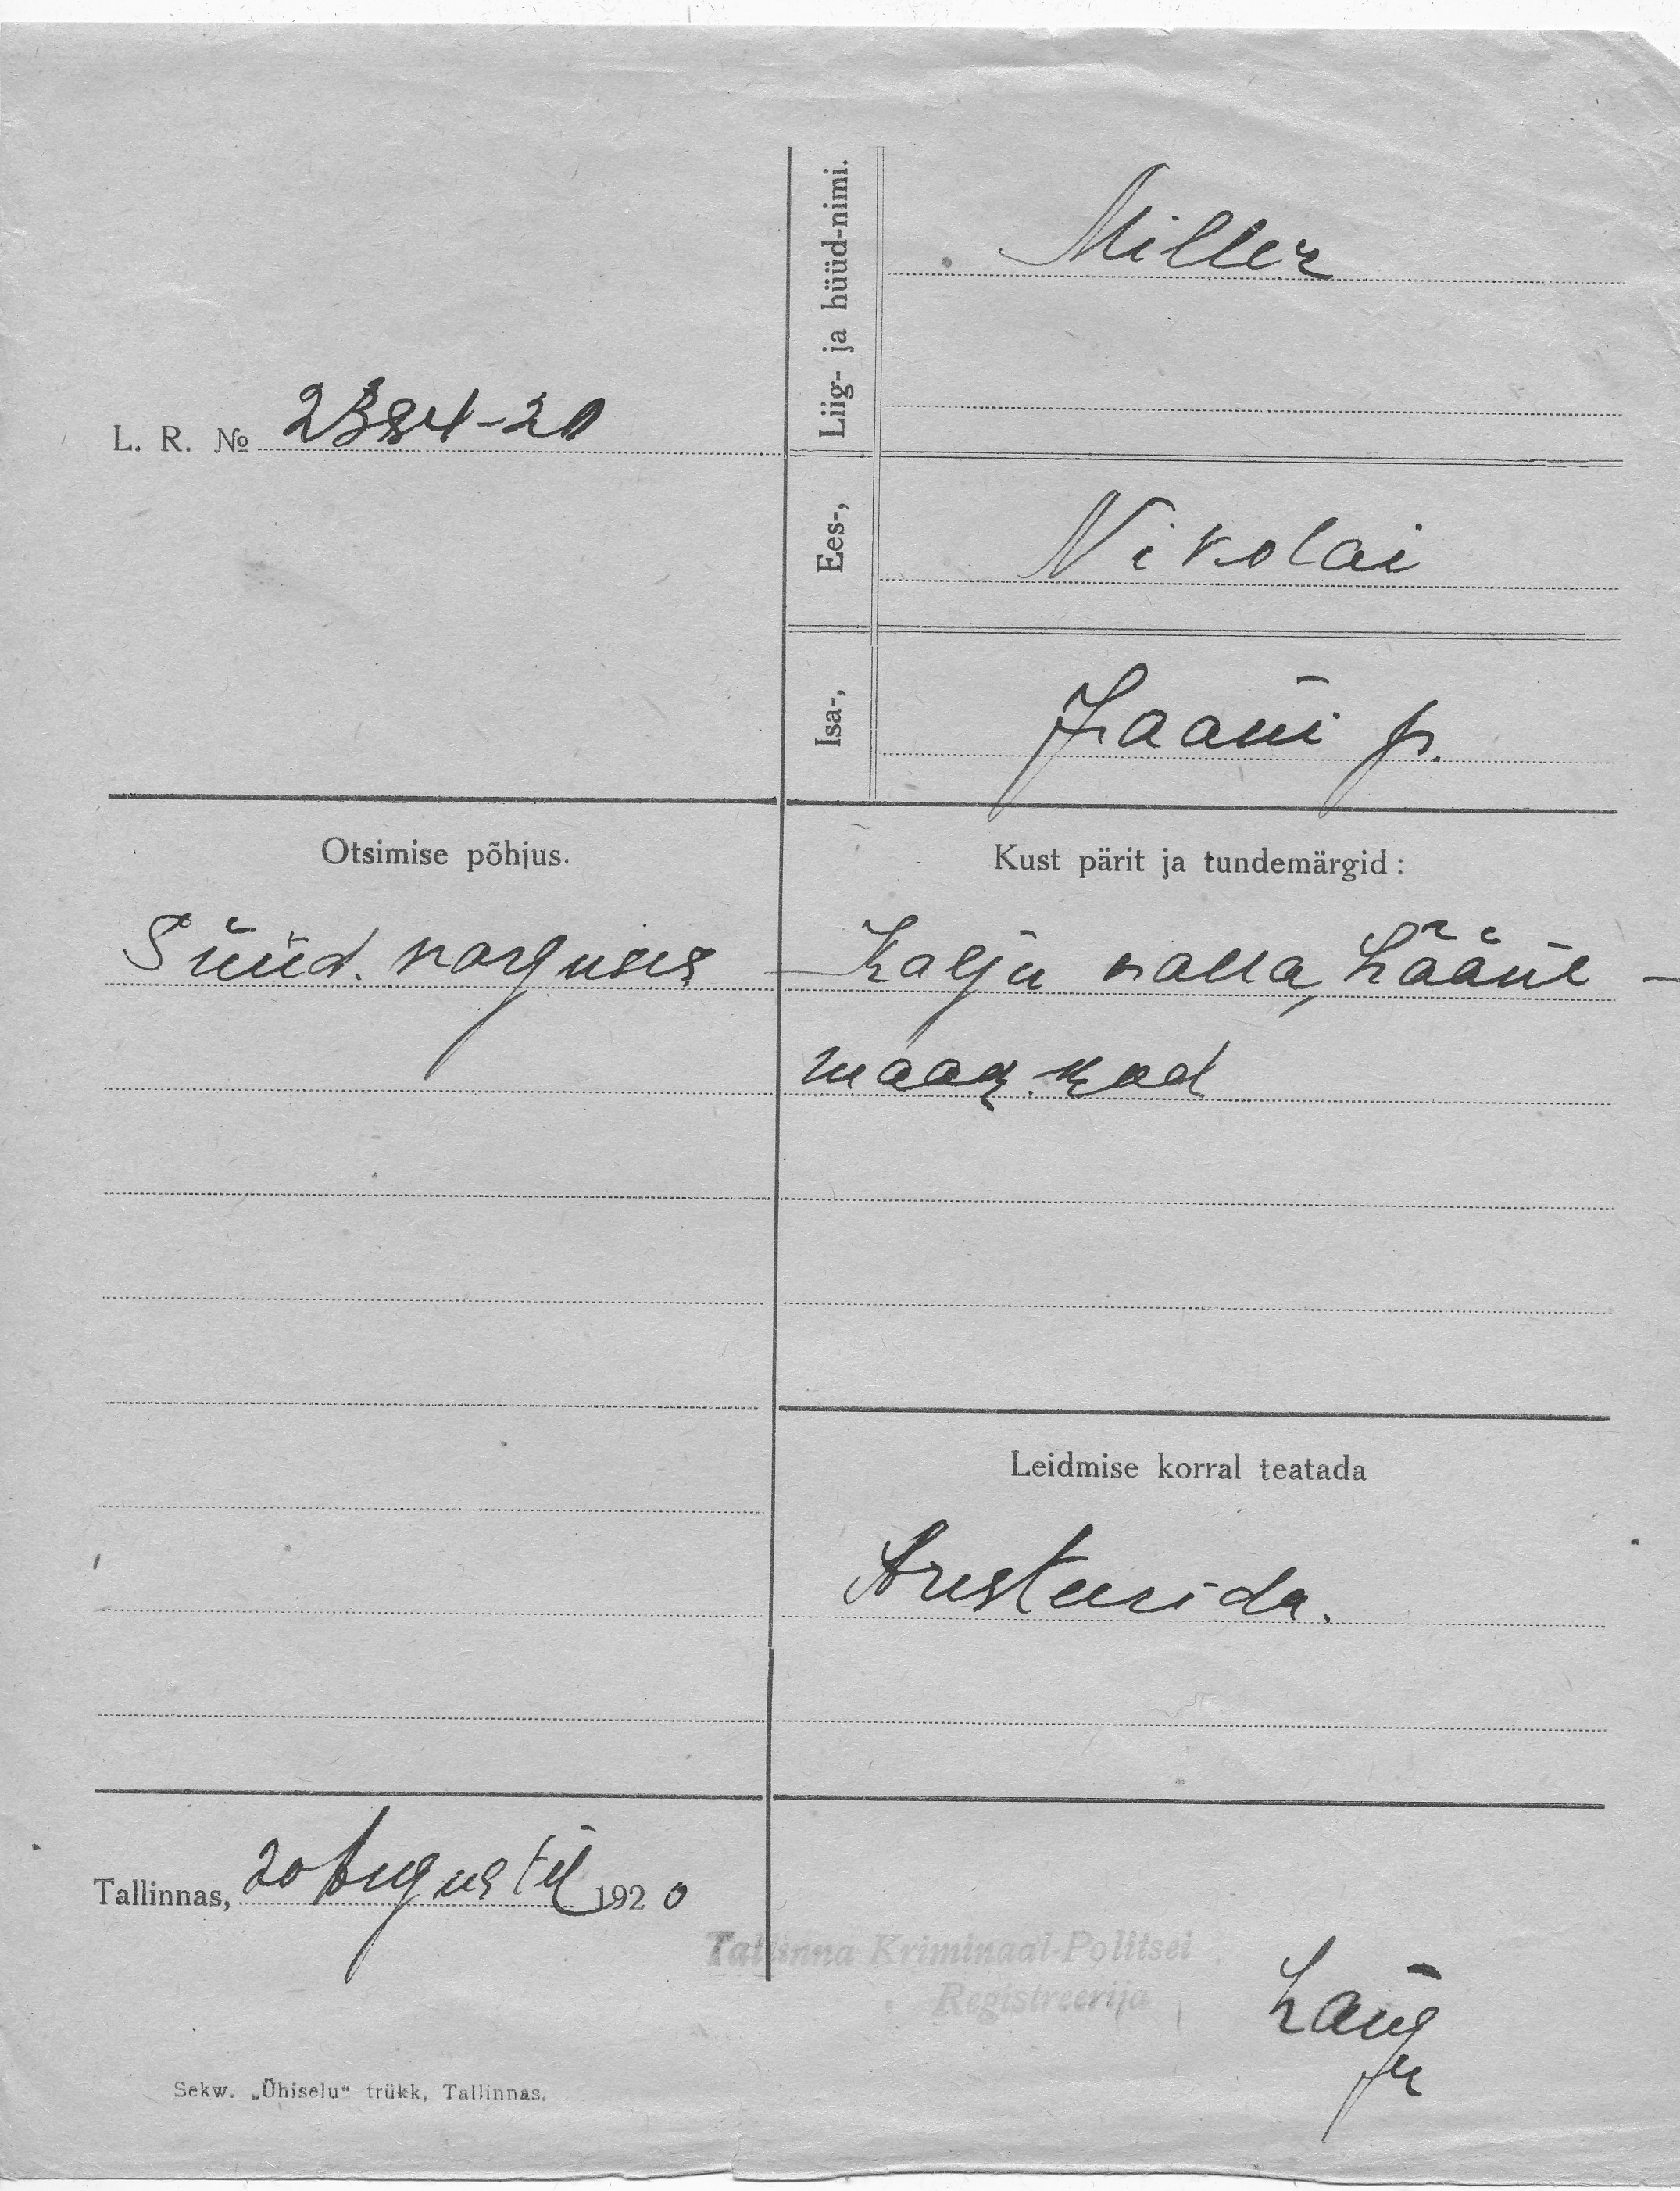 Liig- ja hüüd-nimi.
Miller
L. R. №
Ees-,
Nikolai
Isa-,
Jaani p.
Otsimise põhjus.
Süüd. varguses
Kust pärit ja tundemärgid:
Kalju valla, Lääne-
maak. kod
Leidmise korral teatada
Aresteerida.
Tallinnas, 20 Augustil 1920
Tallinna Kriminaal-Politsei
Registreerija
Sekw. „Ühiselu“ trükk, Tallinnas.